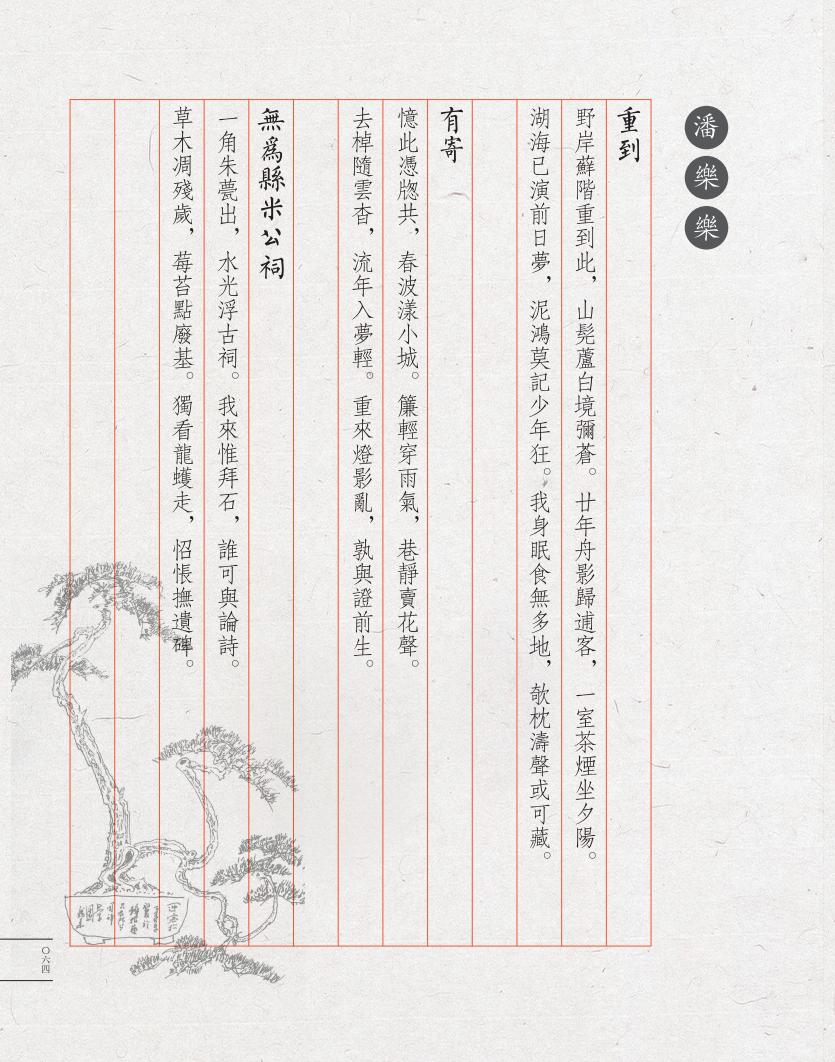 潘樂樂
重到
野岸蘚階重到此，山髡蘆白境彌蒼。廿年舟影歸逋客，一室茶煙坐夕陽。
湖海已演前日夢，泥鴻莫記少年狂。我身眠食無多地，欹枕濤聲或可藏。
有寄
憶此憑牕共，春波漾小城。簾輕穿雨氣，巷靜賣花聲。
去棹隨雲杳，流年入夢輕。重來燈影亂，孰與證前生。
無為縣米公祠
一角朱甍出，水光浮古祠。我來惟拜石，誰可與論詩。
草木凋殘歲，莓苔點廢基。獨看龍蠖走，怊悵撫遺碑。
〇六四